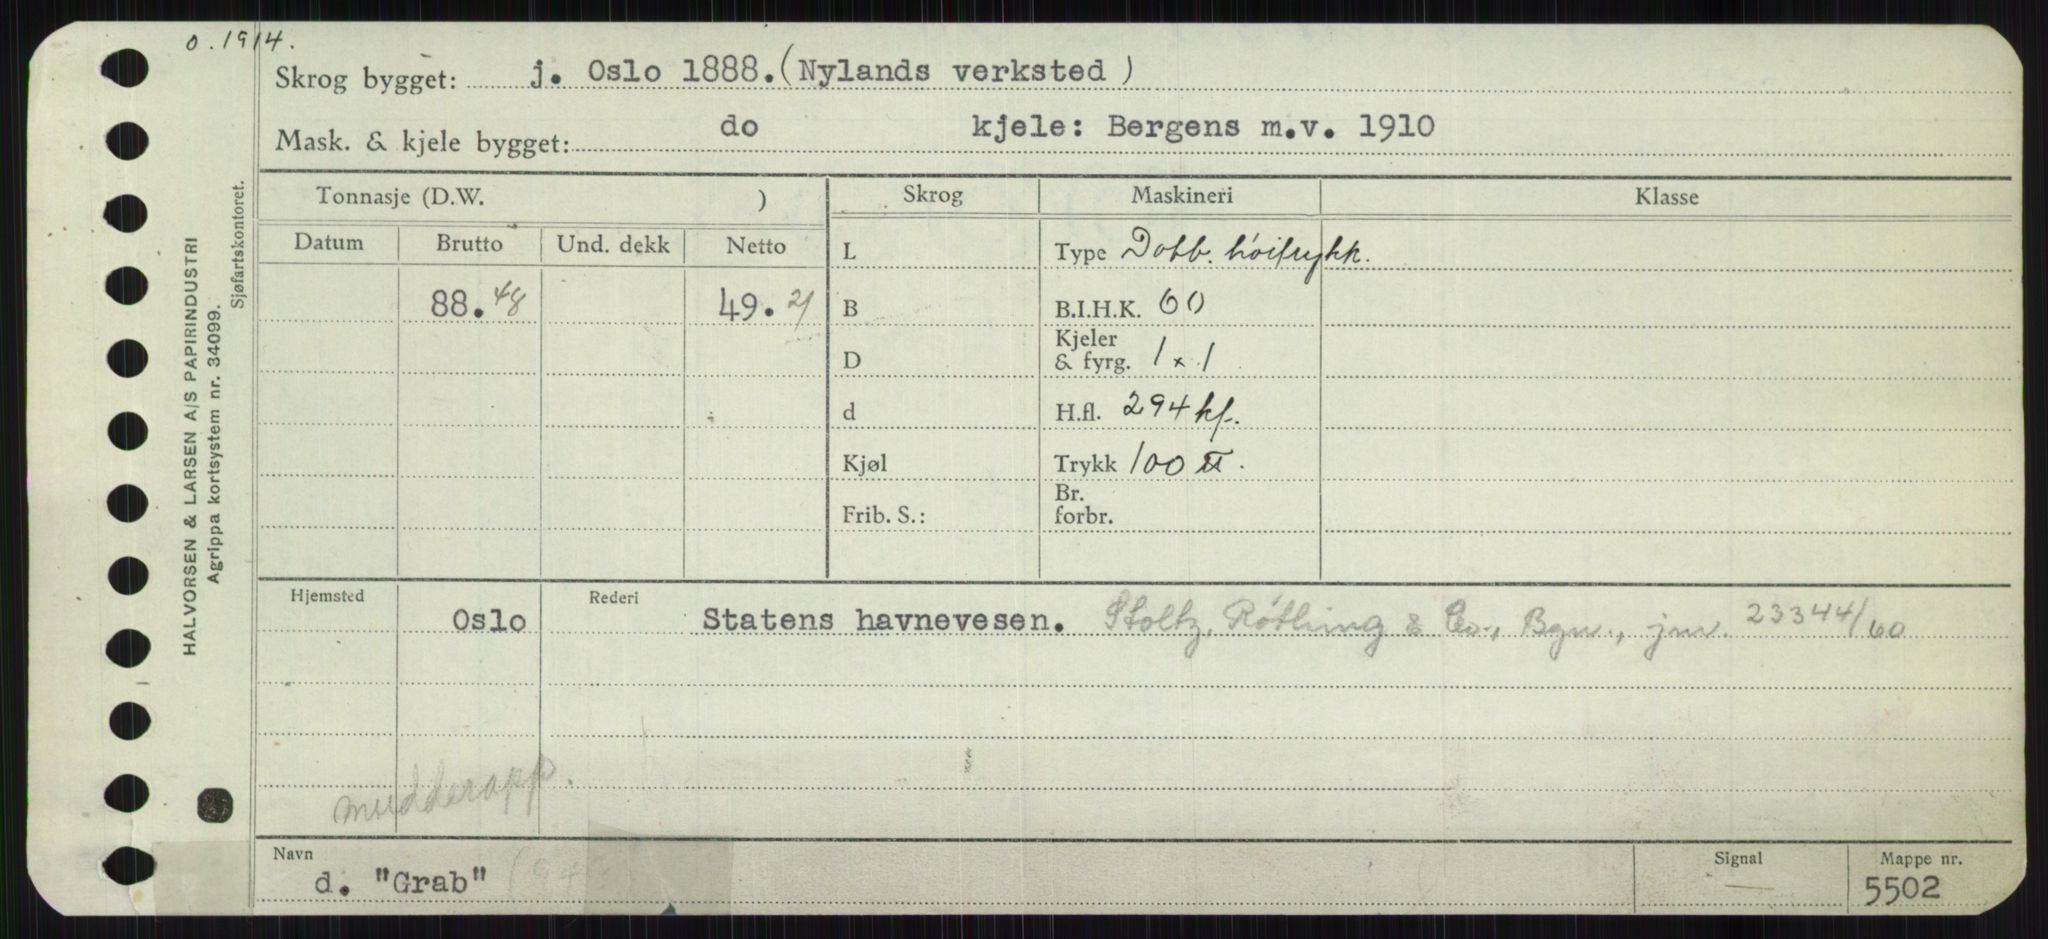 o. 1914.
Skrog bygget: j. Oslo 1888. (Nylands verksted)
Mask. & kjele bygget: do kjele: Bergens m.v. 1910
HALVORSEN & LARSEN A/S PAPIRINDUSTRI
Agrippa kortsystem nr. 34099.
Sjøfartskontoret.
Tonnasje (D.W. ) Skrog Maskineri Klasse
Datum Brutto Und. dekk Netto L Type Dobb. høitrykk.
88.48 49.21 B B.I.H.K. 60
D Kjeler & fyrg. 1 x 1
d H.fl. 294 kf.
Kjøl Trykk 100 ℔.
Frib. S.: Br. forbr.
Hjemsted Oslo Rederi Statens havnevesen. Stoltz, Röthing & Co., Bgn., jnr. 23344/60
mudderapp.
Navn d. "Grab" Signal — Mappe nr. 5502